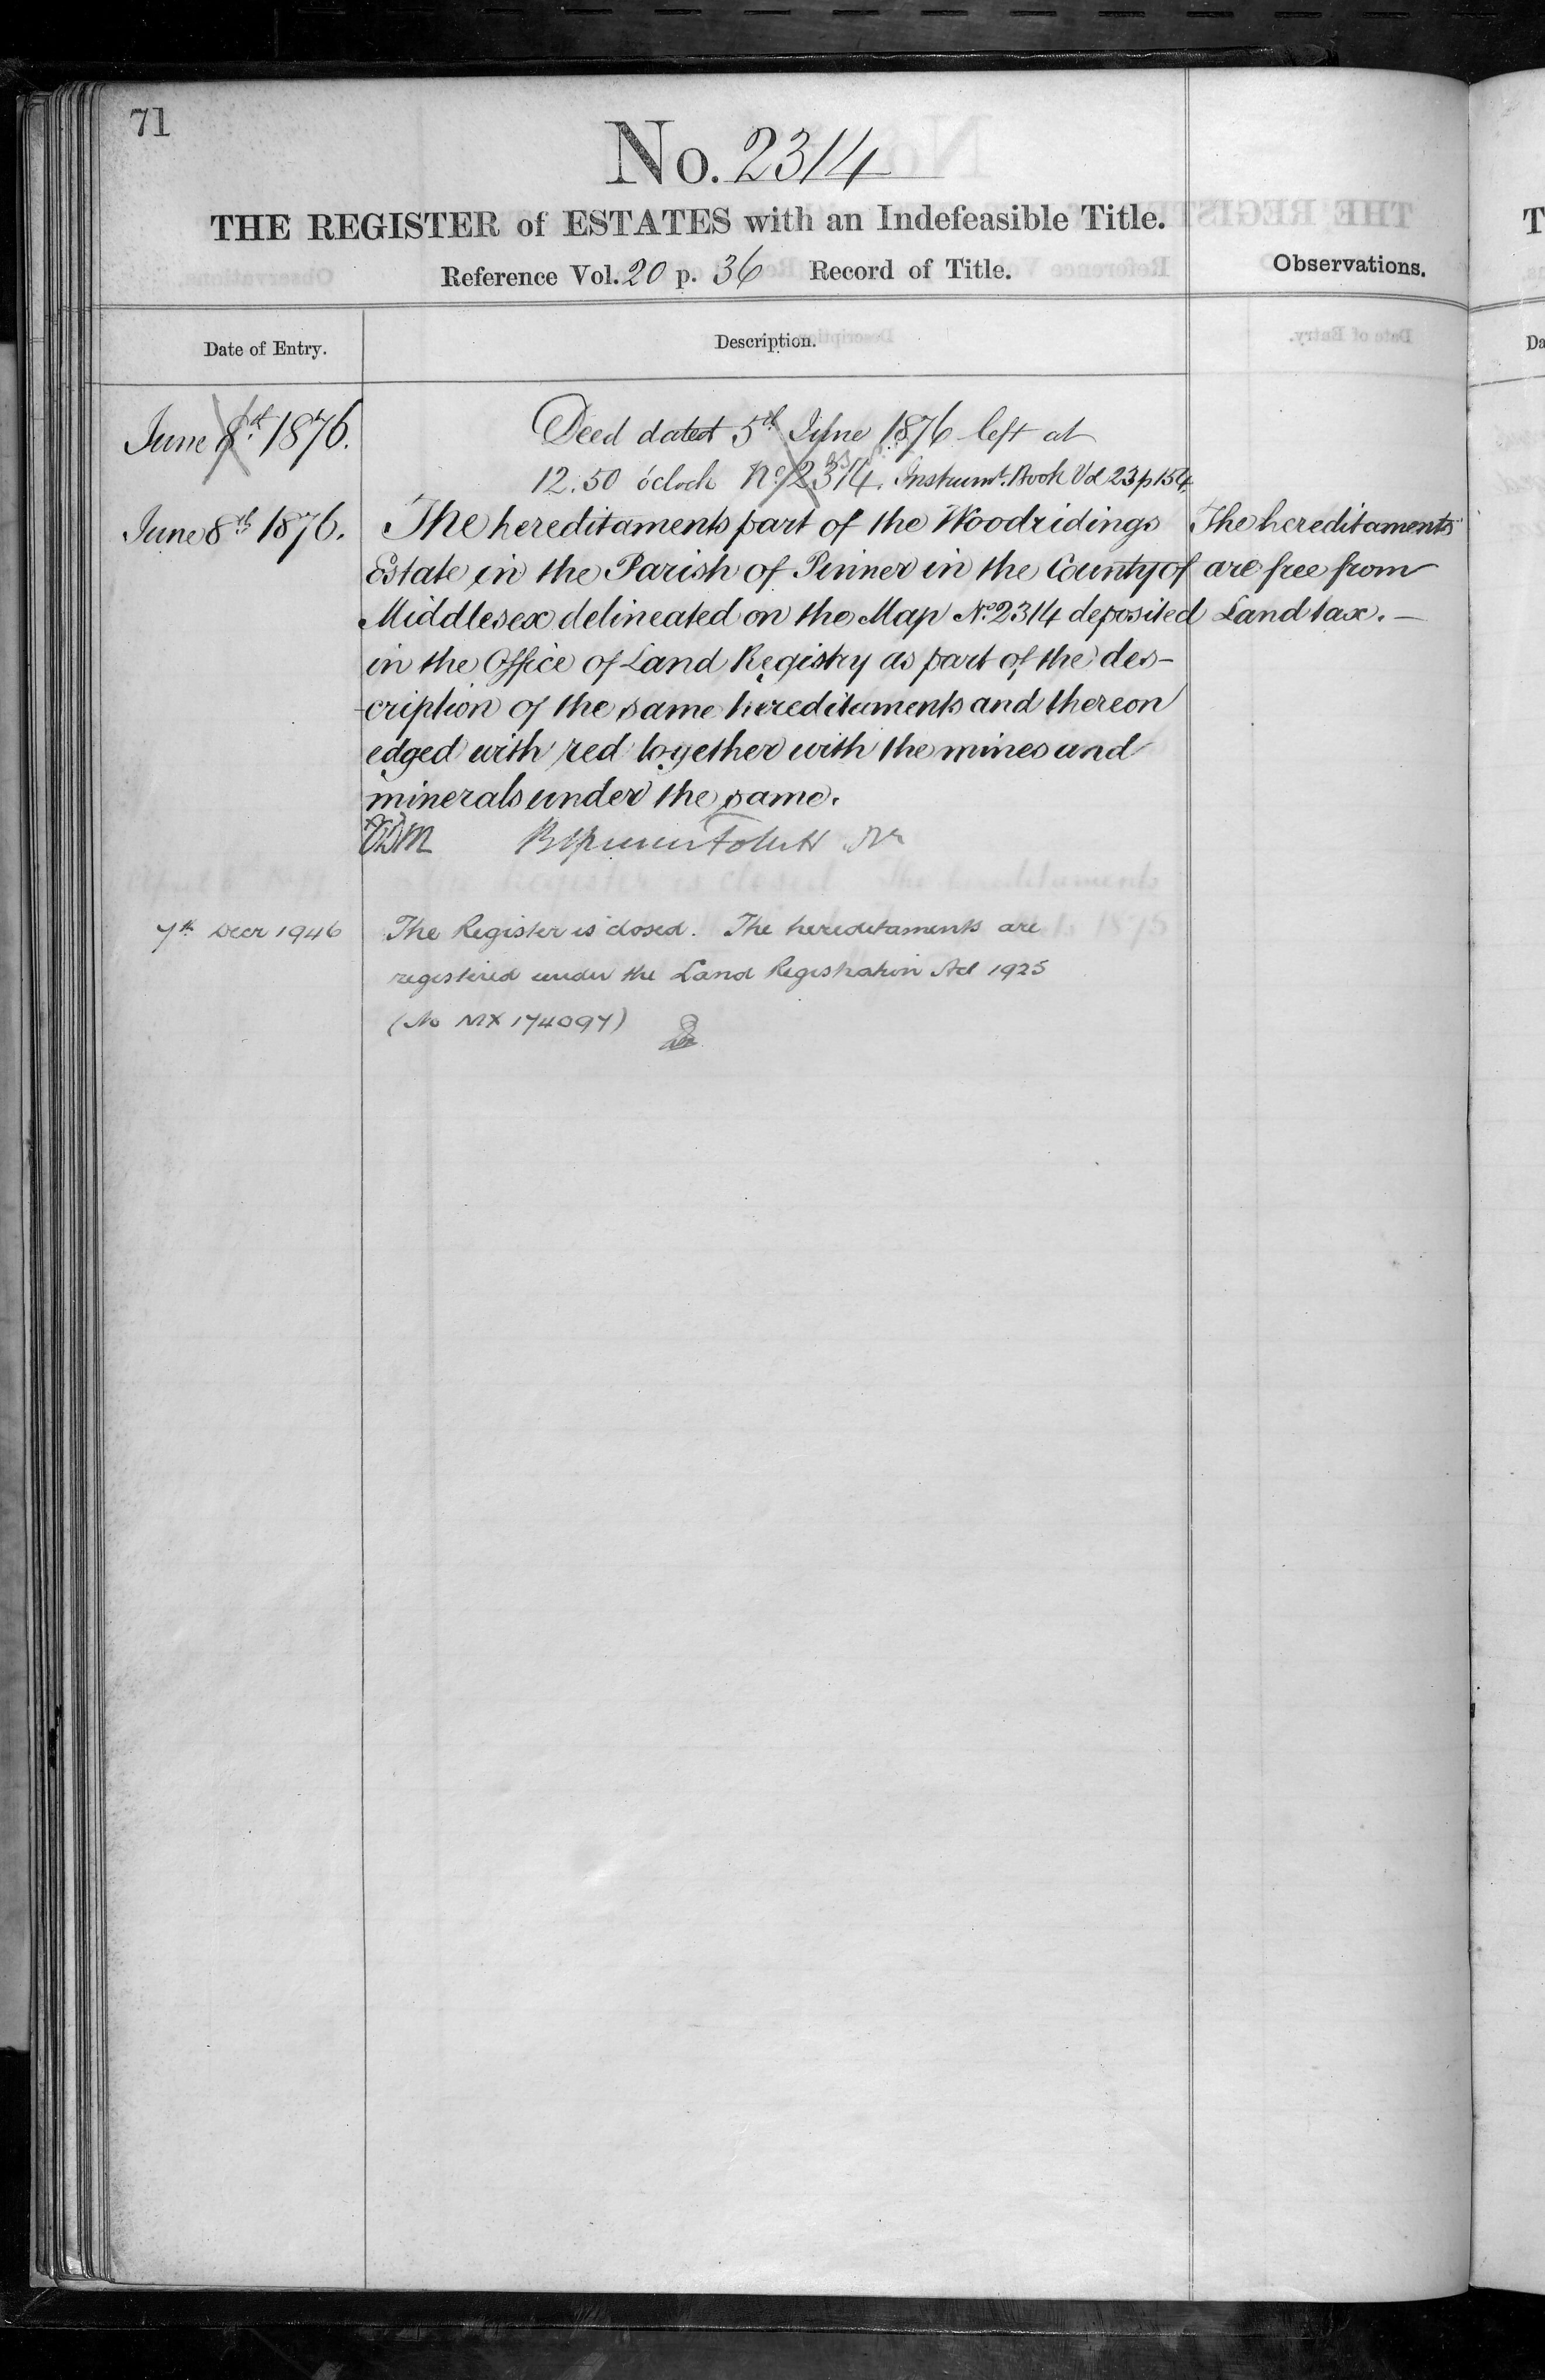 71
No. 2314
THE REGISTER of ESTATES with an Indefeasible Title.
Reference Vol. 20 p. 36 Record of Title.
Observations.
Date of Entry.
Description.
June 8th 1876.
Deed dated 5th June 1876 left at
12.50 o'clock No 2314. Instrumt. Book Vol 23 p 154
June 8th 1876.
The hereditaments part of the Woodridings
Estate in the Parish of Pinner in the County of
Middlesex delineated on the Map No. 2314 deposited
in the Office of Land Registry as part of the des-
-cription of the same hereditaments and thereon
edged with red together with the mines and
minerals under the same.
The hereditaments
are free from
Land tax. —
7th Decr 1946
The Register is closed. The hereditaments are
registered under the Land Registration Act 1925
(No MX 174097)